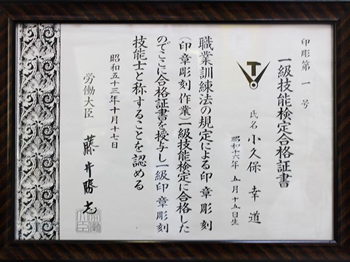 印彫第一号
一級技能検定合格証書
氏名 小久保幸道
昭和十六年五月十五日生
職業訓練法の規定による印章彫刻
(印章彫刻作業)一級技能検定に合格した
のでここに合格証書を授与し一級印章彫刻
技能士と称することを認める
昭和五十三年十月十七日
労働大臣 藤井勝志